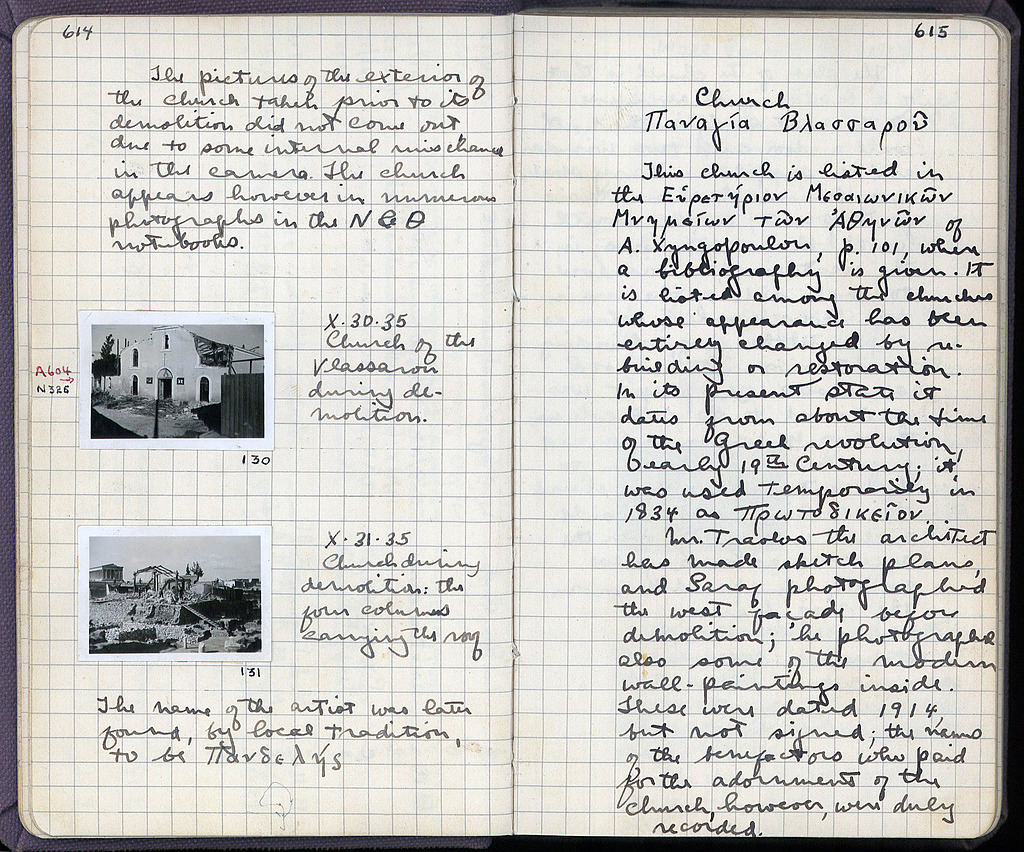 614
The pictures of the exterior of
the church taken prior to its
demolition did not come out
due to some internal mischance
in the camera. The church
appears however in numerous
photographs in the
notebooks.
X·30·35
Church of the
Vlassarou
during de-
molition.
A604
N326
130
X·31·35
Church during
demolition: the
four columns
carrying the roof
131
The name of the artist was later
found, by local tradition,
to be Πανδελής
615
Church
Παναγία Βλασσαροῦ
This church is listed in
the Εὑρετήριον Μεσαιωνικῶν
Μνημείων τῶν Ἀθηνῶν of
A. Xyngopoulou, p. 101, where
a bibliography is given. It
is listed among the churches
whose appearance has been
entirely changed by re-
building or restoration.
In its present state it
dates from about the time
of the Greek revolution,
early 19th Century; it
was used temporarily in
1834 as Πρωτοδικεῖον
Mr. Travlos the architect
has made sketch plans,
and Saraf photographed
the west façade before
demolition; he photographed
also some of the modern
wall-paintings inside.
These were dated 1914,
but not signed; the names
of the benefactors who paid
for the adornment of the
church, however, were duly
recorded.